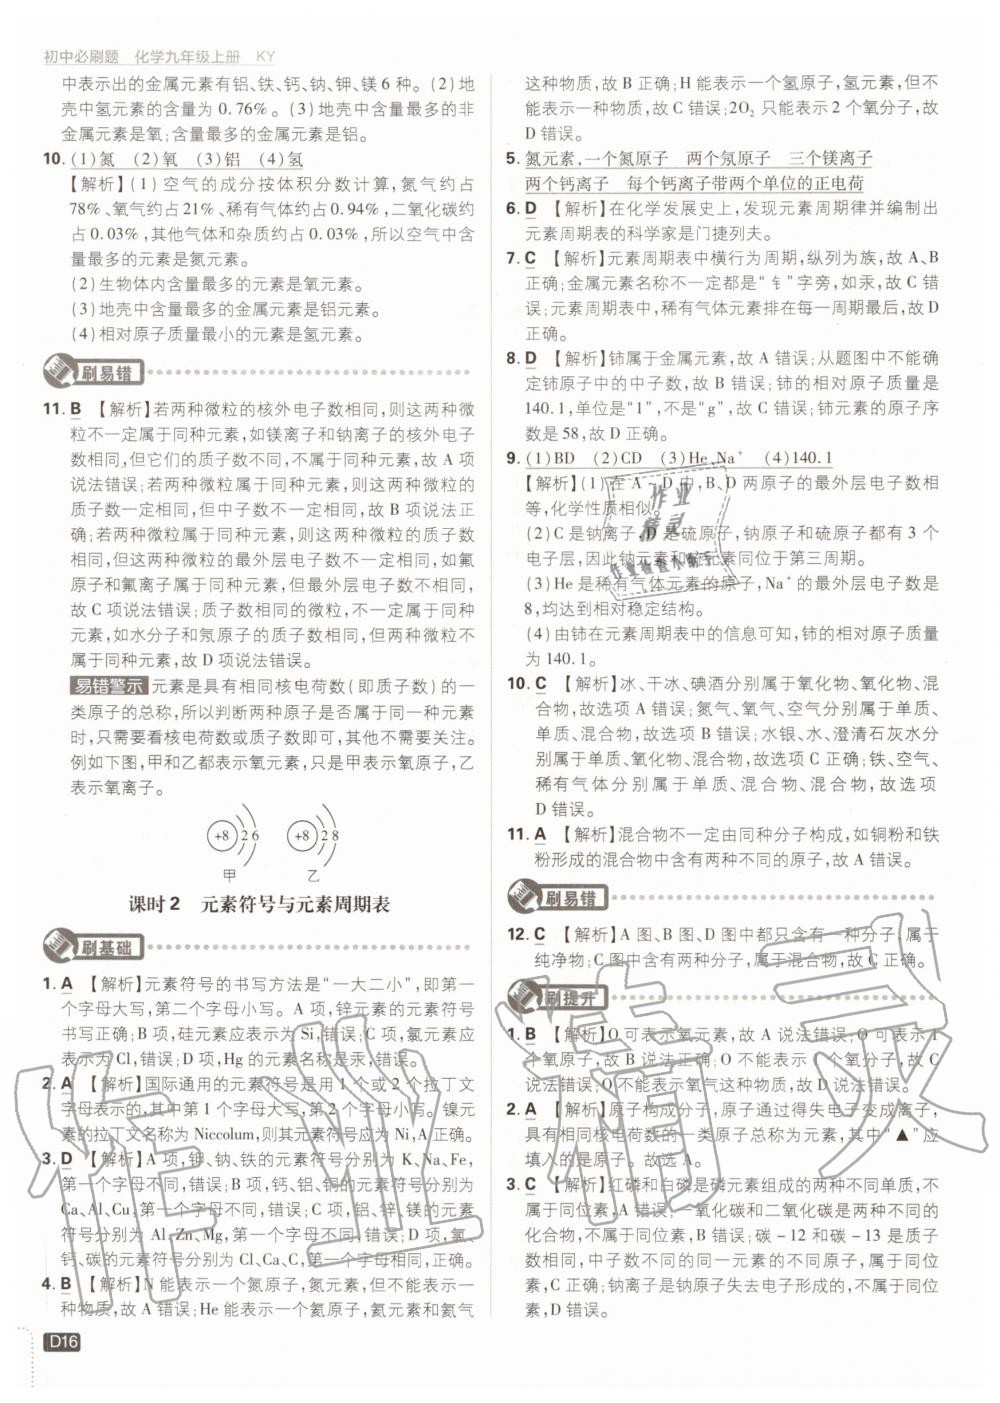 初中必刷题 化学九年级上册 KY
中表示出的金属元素有铝、铁、钙、钠、钾、镁6种。(2)地
壳中氢元素的含量为0.76%。(3)地壳中含量最多的非
金属元素是氧;含量最多的金属元素是铝。
10. (1)氮 (2)氧 (3)铝 (4)氢
【解析】(1)空气的成分按体积分数计算,氮气约占
78%、氧气约占21%、稀有气体约占0.94%,二氧化碳约
占0.03%,其他气体和杂质约占0.03%,所以空气中含
量最多的元素是氮元素。
(2)生物体内含量最多的元素是氧元素。
(3)地壳中含量最多的金属元素是铝元素。
(4)相对原子质量最小的元素是氢元素。
刷易错
11. B 【解析】若两种微粒的核外电子数相同,则这两种微
粒不一定属于同种元素,如镁离子和钠离子的核外电子
数相同,但它们的质子数不同,不属于同种元素,故A项
说法错误;若两种微粒属于同种元素,则这两种微粒的
质子数一定相同,但中子数不一定相同,故B项说法正
确;若两种微粒属于同种元素,则这两种微粒的质子数
相同,但这两种微粒的最外层电子数不一定相同,如氟
原子和氟离子属于同种元素,但最外层电子数不相同,
故C项说法错误;质子数相同的微粒,不一定属于同种
元素,如水分子和氖原子的质子数相同,但两种微粒不
属于同种元素,故D项说法错误。
易错警示 元素是具有相同核电荷数(即质子数)的一
类原子的总称,所以判断两种原子是否属于同一种元素
时,只需要看核电荷数或质子数即可,其他不需要关注。
例如下图,甲和乙都表示氧元素,只是甲表示氧原子,乙
表示氧离子。
+8 2 6 +8 2 8
甲 乙
课时2 元素符号与元素周期表
刷基础
1. A 【解析】元素符号的书写方法是“一大二小”,即第一
个字母大写,第二个字母小写。A项,锌元素的元素符号
书写正确;B项,硅元素应表示为Si,错误;C项,氯元素应
表示为Cl,错误;D项,Hg的元素名称是汞,错误。
2. A 【解析】国际通用的元素符号是用1个或2个拉丁文
字母表示的,其中第1个字母大写,第2个字母小写。镍元
素的拉丁文名称为Niccolum,则其元素符号应为Ni,A正确。
3. D 【解析】A项,钾、钠、铁的元素符号分别为K、Na、Fe,
第一个字母不同,错误;B项,钙、铝、铜的元素符号分别为
Ca、Al、Cu,第一个字母不同,错误;C项,铝、锌、镁的元素
符号分别为Al、Zn、Mg,第一个字母不同,错误;D项,氯、
钙、碳的元素符号分别为Cl、Ca、C,第一个字母相同,正确。
4. B 【解析】N能表示一个氮原子,氮元素,但不能表示一
种物质,故A错误;He能表示一个氦原子,氦元素和氦气
D16
这种物质,故B正确;H能表示一个氢原子,氢元素,但不
能表示一种物质,故C错误;2O₂只能表示2个氧分子,故
D错误。
5. 氮元素,一个氮原子 两个氖原子 三个镁离子
两个钙离子 每个钙离子带两个单位的正电荷
6. D 【解析】在化学发展史上,发现元素周期律并编制出
元素周期表的科学家是门捷列夫。
7. C 【解析】元素周期表中横行为周期,纵列为族,故A、B
正确;金属元素名称不一定都是“钅”字旁,如汞,故C错
误;元素周期表中,稀有气体元素排在每一周期最后,故D
正确。
8. D 【解析】铈属于金属元素,故A错误;从题图中不能确
定铈原子中的中子数,故B错误;铈的相对原子质量是
140.1,单位是“1”,不是“g”,故C错误;铈元素的原子序
数是58,故D正确。
9. (1)BD (2)CD (3)He、Na⁺ (4)140.1
【解析】(1)在A~D中,B、D两原子的最外层电子数相
等,化学性质相似。
(2)C是钠离子,D是硫原子,钠原子和硫原子都有3个
电子层,因此钠元素和硫元素同位于第三周期。
(3)He是稀有气体元素的原子,Na⁺的最外层电子数是
8,均达到相对稳定结构。
(4)由铈在元素周期表中的信息可知,铈的相对原子质量
为140.1。
10. C 【解析】冰、干冰、碘酒分别属于氧化物、氧化物、混
合物,故选项A错误;氮气、氧气、空气分别属于单质、
单质、混合物,故选项B错误;水银、水、澄清石灰水分
别属于单质、氧化物、混合物,故选项C正确;铁、空气、
稀有气体分别属于单质、混合物、混合物,故选项
D错误。
11. A 【解析】混合物不一定由同种分子构成,如铜粉和铁
粉形成的混合物中含有两种不同的原子,故A错误。
刷易错
12. C 【解析】A图、B图、D图中都只含有一种分子,属于
纯净物;C图中含有两种分子,属于混合物,故C正确。
刷提升
1. B 【解析】O可表示氧元素,故A说法错误;O可表示1
个氧原子,故B说法正确;O不能表示1个氧分子,故C
说法错误;O不能表示氧气这种物质,故D说法错误。
2. A 【解析】原子构成分子,原子通过得失电子变成离子,
具有相同核电荷数的一类原子总称为元素,其中“▲”应
填入的是原子。故选A。
3. C 【解析】红磷和白磷是磷元素组成的两种不同单质,不
属于同位素,A错误;一氧化碳和二氧化碳是两种不同的
化合物,不属于同位素,B错误;碳-12和碳-13是质子
数相同,中子数不同的同一元素的不同原子,属于同位
素,C正确;钠离子是钠原子失去电子形成的,不属于同位
素,D错误。
作业精灵
作业精灵